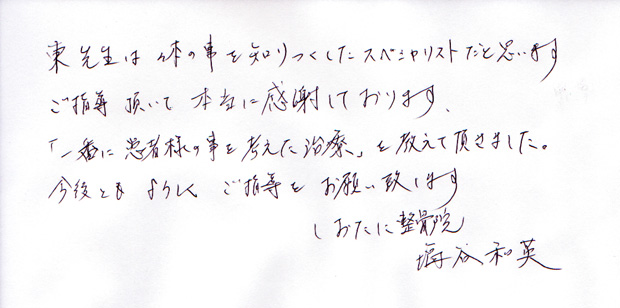 東先生は体の事を知りつくしたスペシャリストだと思います
ご指導頂いて本当に感謝しております、
「一番に患者様の事を考えた治療」を教えて頂きました。
今後ともよろしくご指導をお願い致します
しおたに整骨院
塩谷和英